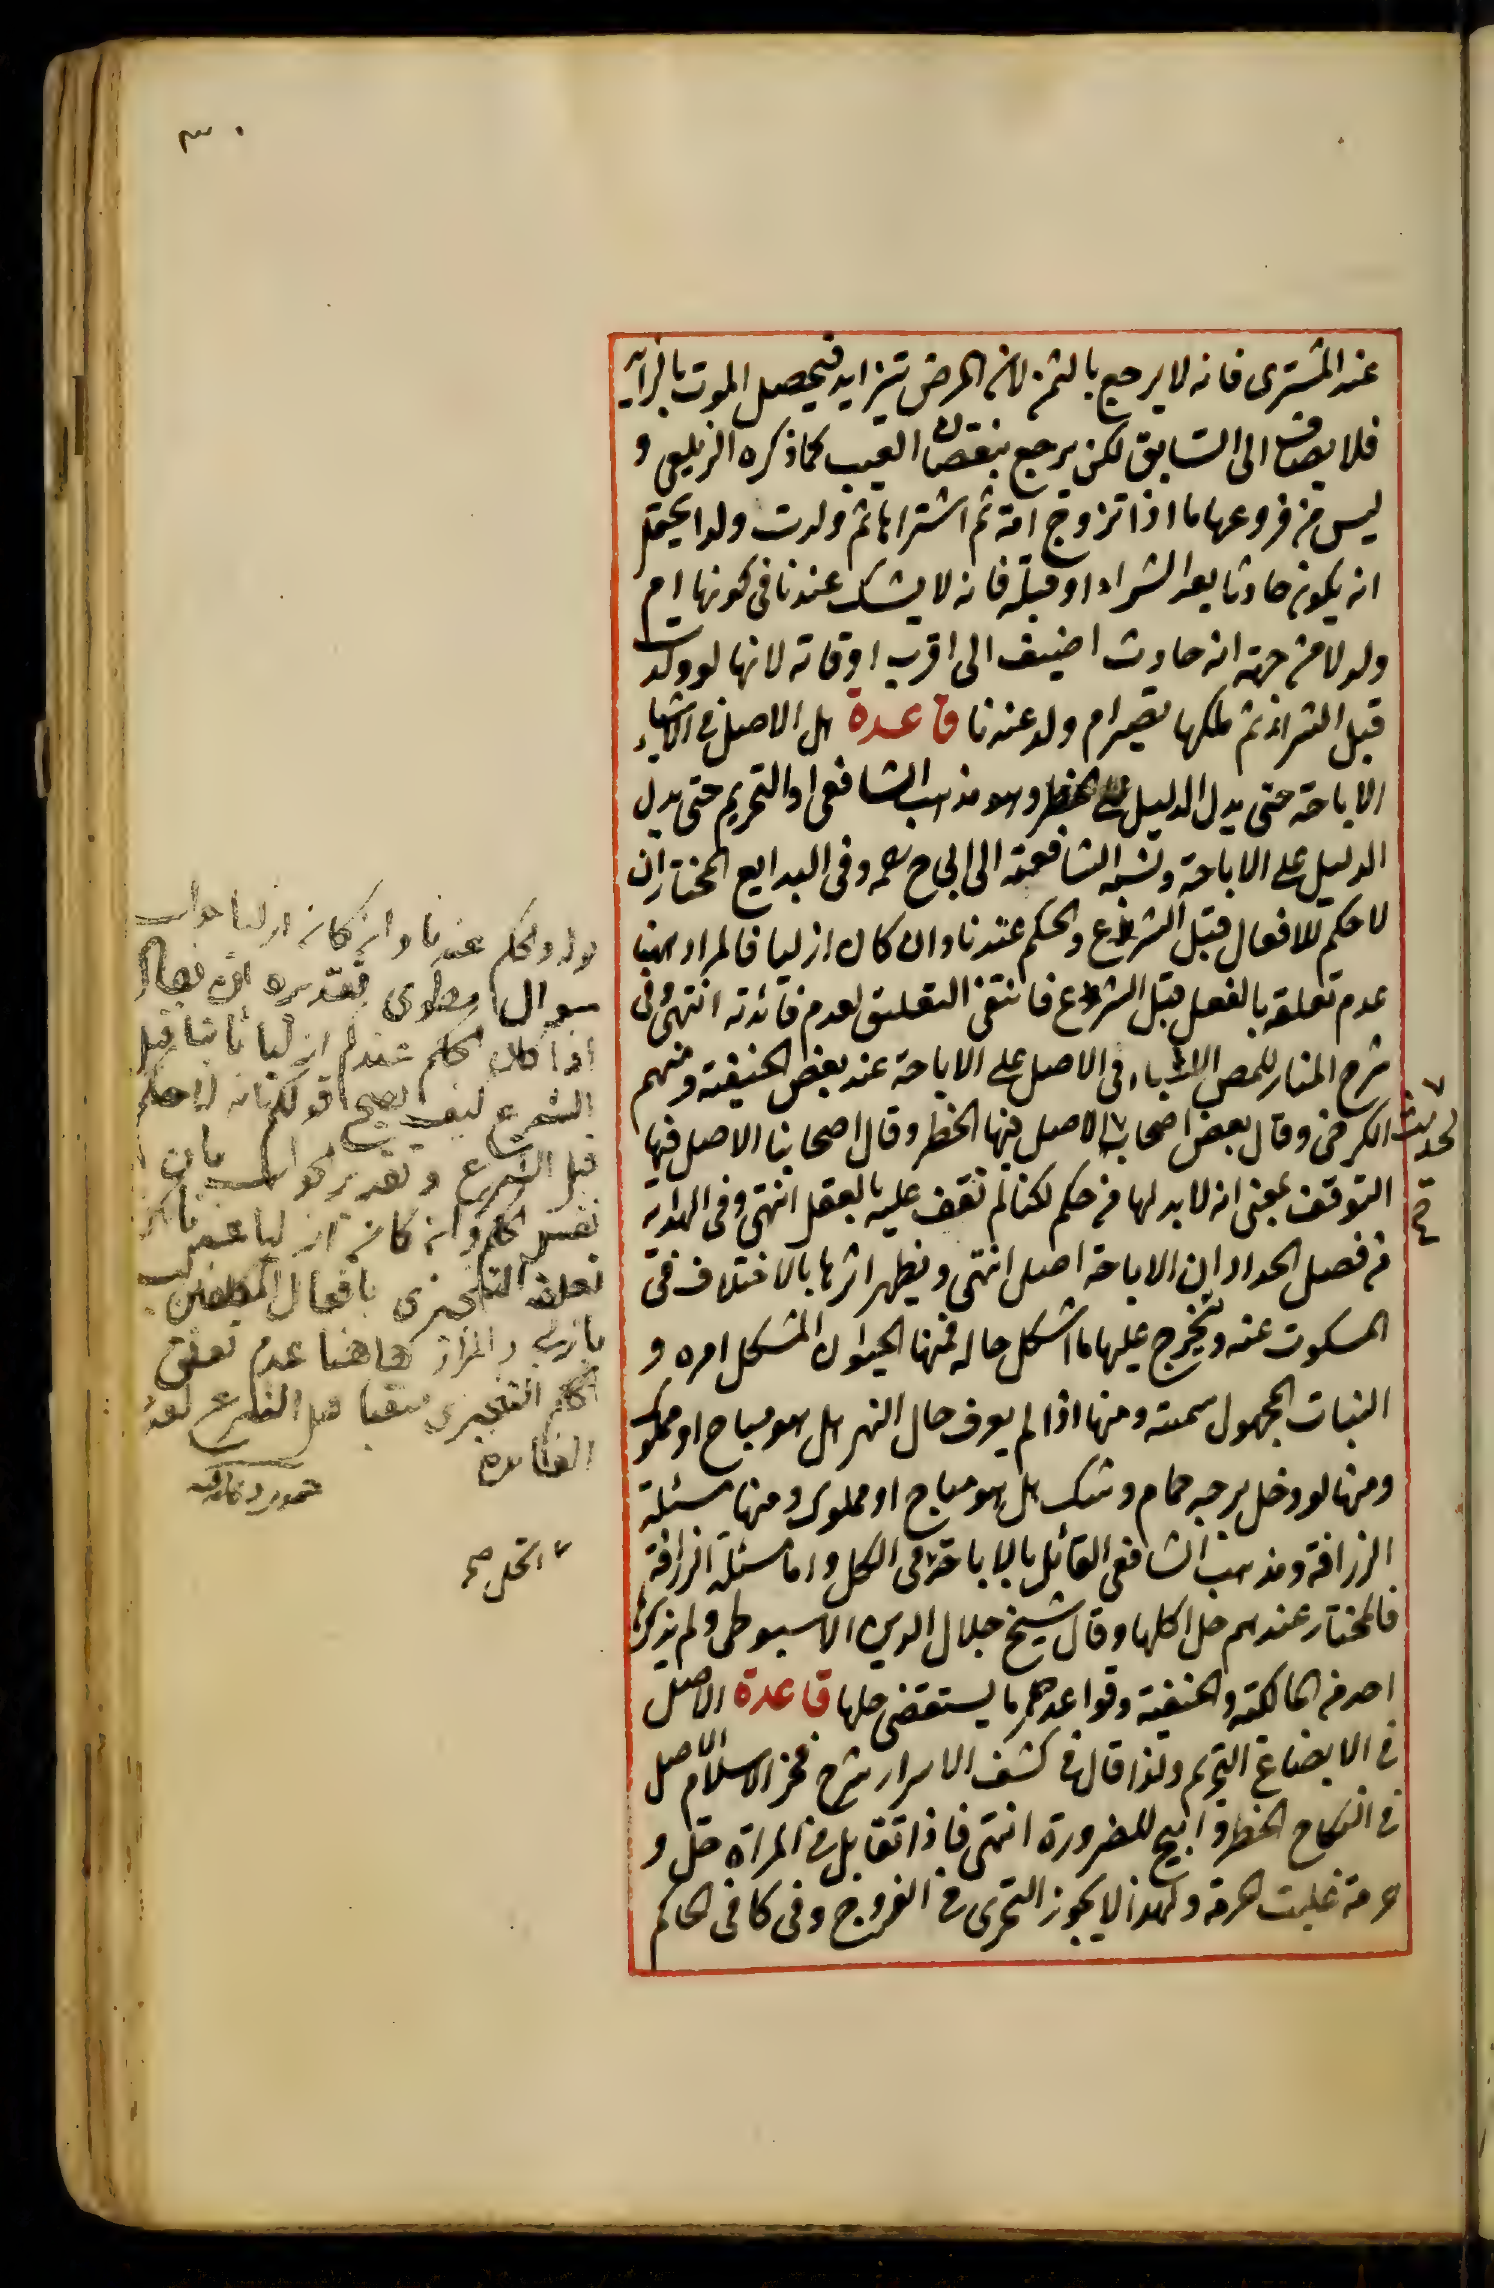 ٣٠
عند المشترى فانه لا يرجع بالثمن لان المرض يتزايد فيحصل الموت بالزايد
فلا يضاف الى السابق لكن يرجع بنقصان العيب كما ذكره الزيلعى و
ليس من فروعها ما اذا تزوج امة ثم اشتراها ثم ولدت ولدا يحتمل
ان يكون حادثا بعد الشراء او قبله فانه لا يشك عندنا فى كونها ام
ولد لا من جهة انه حادث اضيف الى اقرب اوقاته لانها لو ولدت
قبل الشراء ثم ملكها تصير ام ولد عندنا قاعدة هل الاصل فى الاشياء
الاباحة حتى يدل الدليل على الحظر وهو مذهب الشافعى او التحريم حتى يدل
الدليل على الاباحة ونسبه الشافعية الى ابى ح رحمه وفى البدايع المختار ان
لا حكم للافعال قبل الشرع والحكم عندنا وان كان ازليا فالمراد ههنا
عدم تعلقه بالفعل قبل الشرع فانتفى التعليق لعدم فائدته انتهى وفى
شرح المنار للمص الاشياء فى الاصل على الاباحة عند بعض الحنيفة ومنهم
الكرخى وقال بعض اصحاب الاصل فيها الحظر وقال اصحابنا الاصل فيها
التوقف بمعنى انه لا بد لها من حكم لكنا لم نقف عليه بالعقل انتهى وفى الهداية
من فصل الحداد ان الاباحة اصل انتهى ويظهر اثرها بالاختلاف فى
المسكوت عنه ويتخرج عليها ما اشكل حاله فمنها الحيوان المشكل امره و
النبات المجهول سمته ومنها اذا لم يعرف حال النهر هل هو مباح او مملوك
ومنها لو دخل برجه حمام وشك هل هو مباح او مملوك ومنها مسئلة
الزرافة ومذهب الشافعى القائل بالاباحة فى الكل واما مسئلة الزرافة
فالمختار عندهم حل اكلها وقال شيخ جلال الدين الاسيوطى ولم يذكرها
احد من المالكية والحنفية وقواعدهم ما يستقضى حلها قاعدة الاصل
فى الابضاع التحريم ولذا قال فى كشف الاسرار شرح فخر الاسلام الاصل
فى النكاح الحظر وابيح للضرورة انتهى فاذا تقابل فى المراة حل و
حرمة غلبت الحرمة ولهذا لا يجوز التحرى فى الفروج وفى كافى الحاكم
الحديث
صح
قوله والحكم عندنا وان كان ازليا جواب
سوال مطوى تقديره ان يقال
اذا كان الحكم عندكم ازليا ثابتا قبل
الشرع كيف يصح قولكم انه لا حكم
قبل الشرع وتقدير الجواب بان
نفس الحكم وان كان ازليا
تعلقه التنجيزى بافعال المكلفين
بازلى والمراد هاهنا عدم تعلق
الحكم التنجيزى قبل الشرع لعدم
الفائدة
الحل صح